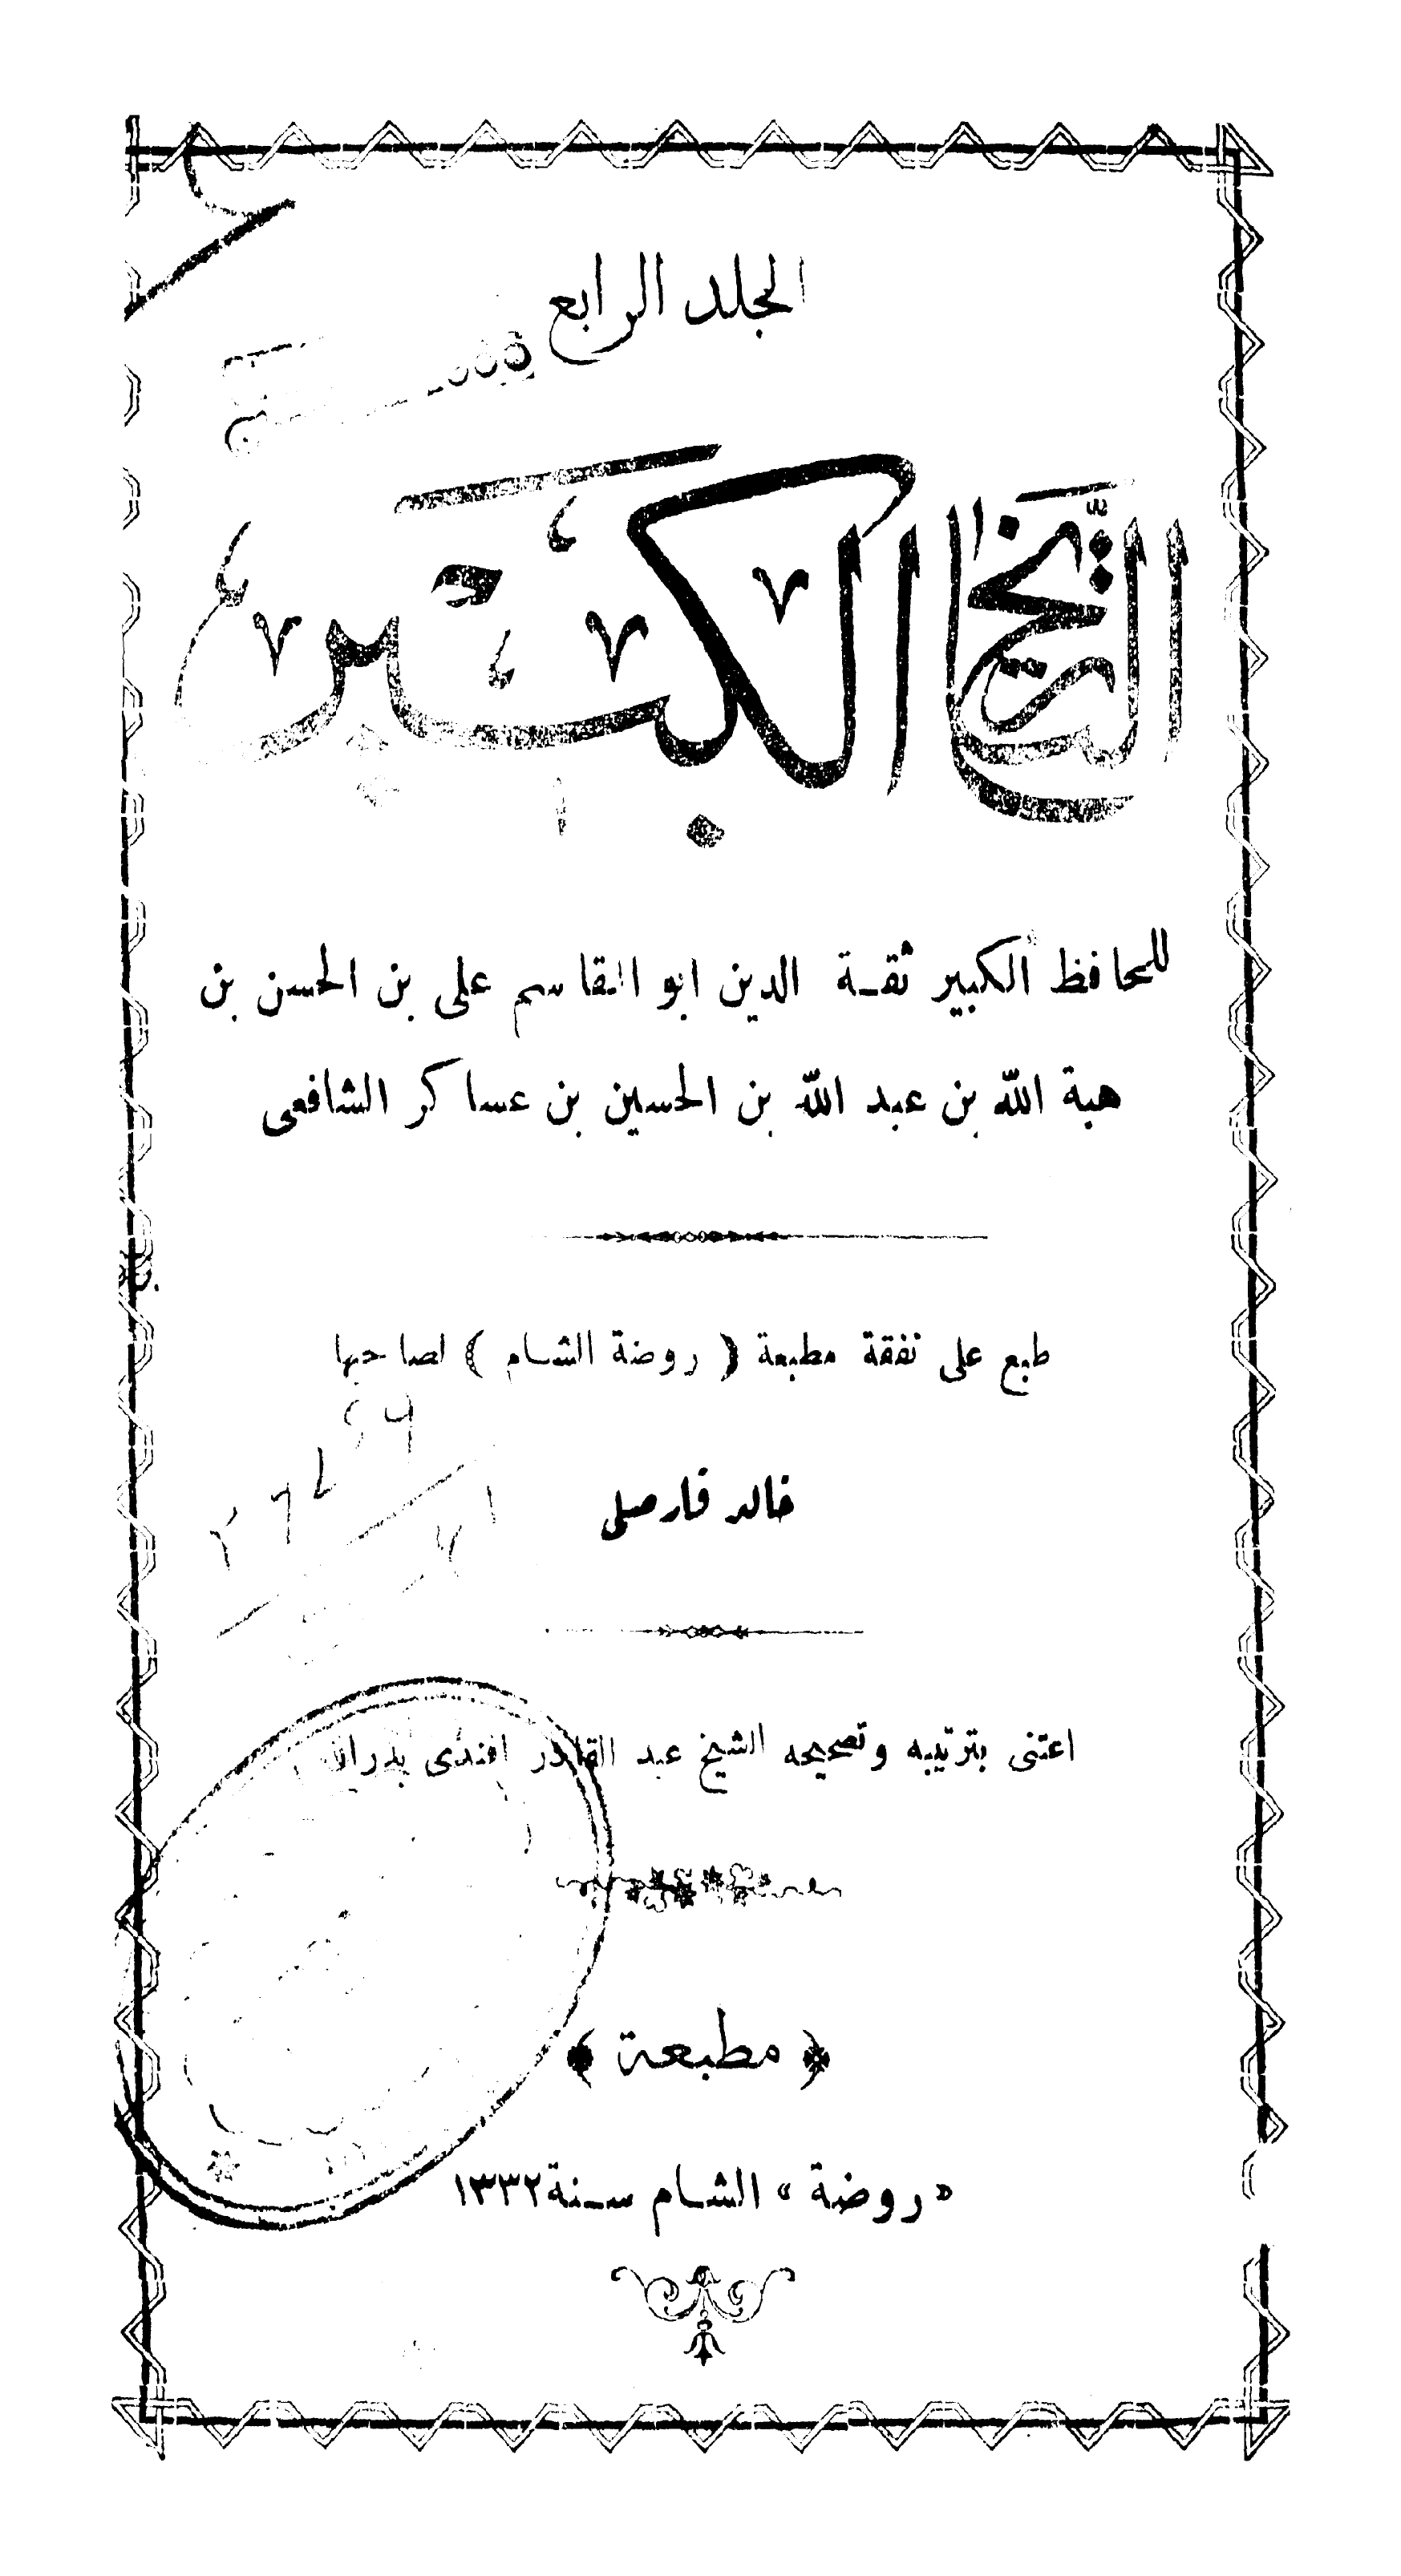 المجلد الرابع
التاريخ الكبير
للحافظ الكبير ثقـة الدين ابو القاسم على بن الحسن بن
هبة الله بن عبد الله بن الحسين بن عساكر الشافعى
طبع على نفقة مطبعة ( روضة الشـام ) لصاحبها
خالد قارصلى
اعتنى بترتيبه وتصحيحه الشيخ عبد القادر افندى بدران
﴿ مطبعة ﴾
« روضة » الشـام سـنة ١٣٣٢